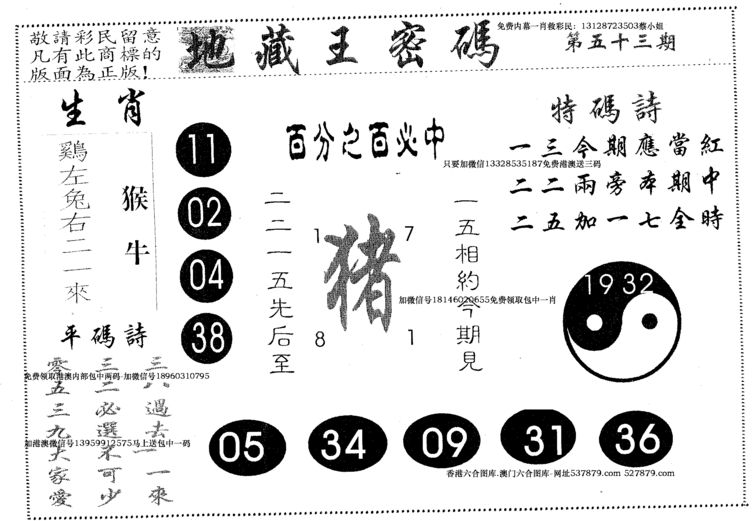 敬請彩民留意
凡有此商標的
版面為正版！
地藏王密碼
免费内幕一肖救彩民：13128723503蔡小姐
第五十三期
生肖
鷄左兔右二一來
猴牛
11
02
04
38
百分之百必中
只要加微信13328535187免费港澳送三码
特碼詩
一三今期應當紅
二二兩旁本期中
二五加一七全時
二二一五先后至
1
7
猪
8
1
一五相約今期見
加微信号18146020655免费领取包中一肖
19 32
平碼詩
三八過去一一來
三二必選不可少
零五三九大家愛
免费领取港澳内部包中两码-加微信号18960310795
加港澳微信号13959912575马上送包中一码
05
34
09
31
36
香港六合图库.澳门六合图库-网址537879.com 527879.com